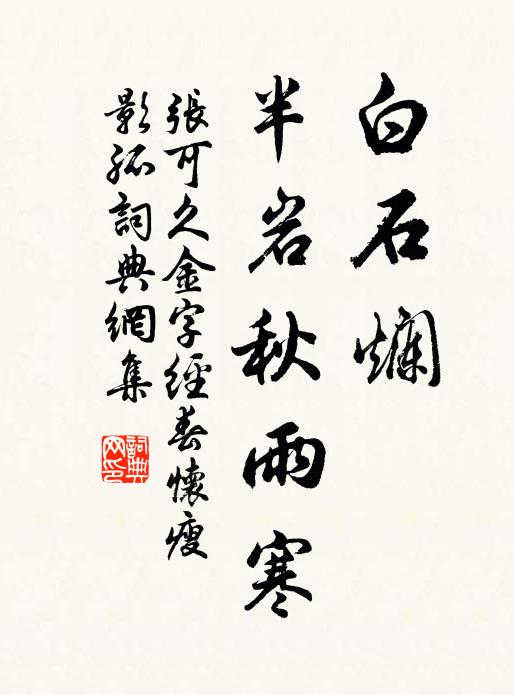 白石爛
半岩秋雨寒
張可久金字經春懷瘦
影孤詞典網集
詞典網印